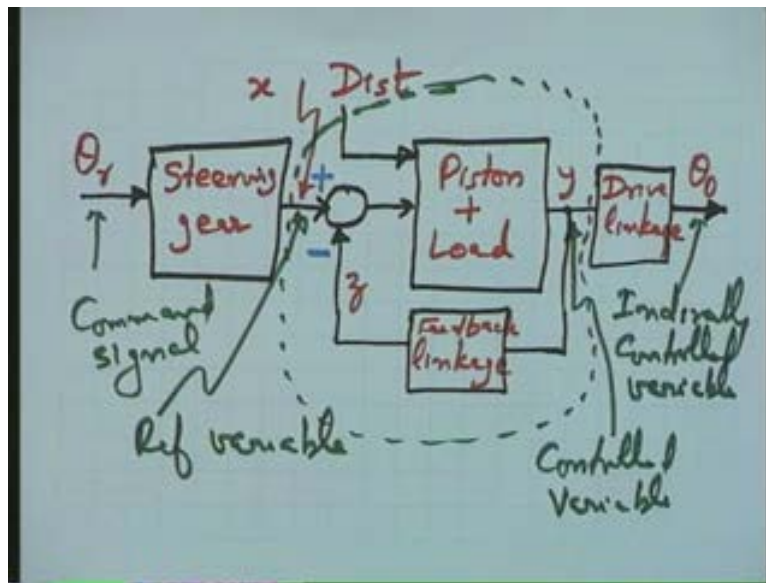 x Dist
θr
Steering
gear
+
-
Piston
+
Load
y
Drive
linkage
θ0
z
Feedback
linkage
Command
signal
Ref variable
Indirectly
Controlled
variable
Controlled
Variable